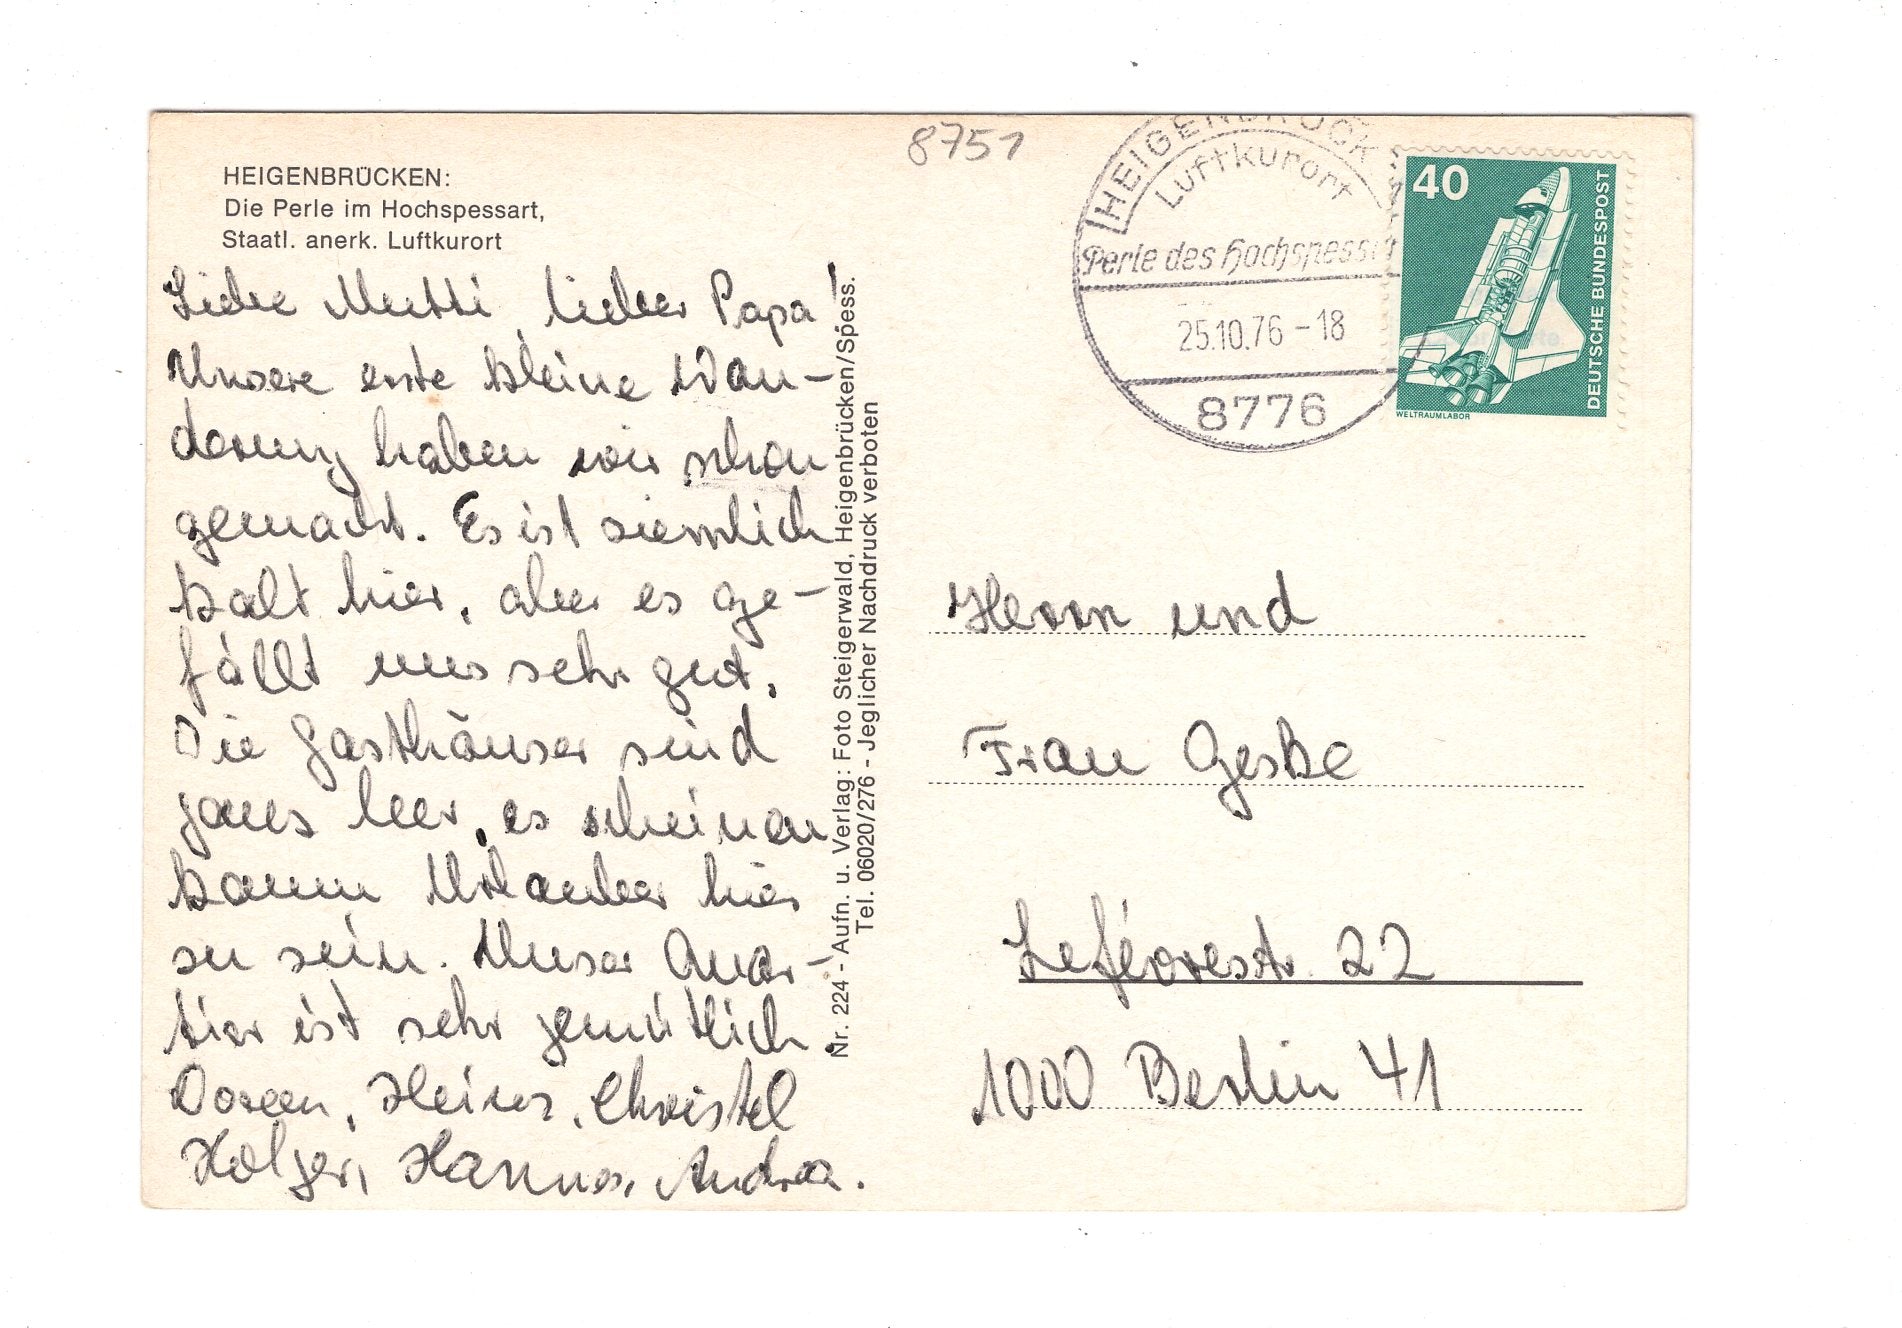 HEIGENBRÜCKEN:
Die Perle im Hochspessart,
Staatl. anerk. Luftkurort
Liebe Mutti, lieber Papa!
Unsere erste kleine Wan-
derung haben wir schon
gemacht. Es ist ziemlich
kalt hier, aber es ge-
fällt uns sehr gut.
Die Gasthäuser sind
ganz leer, es scheinen
kaum Urlauber hier
zu sein. Unser Quar-
tier ist sehr gemütlich.
Doreen, Heinz, Christel
Holger, Hannes, Andrea.
Nr. 224 - Aufn. u. Verlag: Foto Steigerwald, Heigenbrücken/Spess.
Tel. 06020/276 - Jeglicher Nachdruck verboten
8751
HEIGENBRÜCK
Luftkurort
Perle des Hochspessart
25.10.76 - 18
8776
40
DEUTSCHE BUNDESPOST
WELTRAUMLABOR
Herrn und
Frau Geske
Lefévrestr. 22
1000 Berlin 41